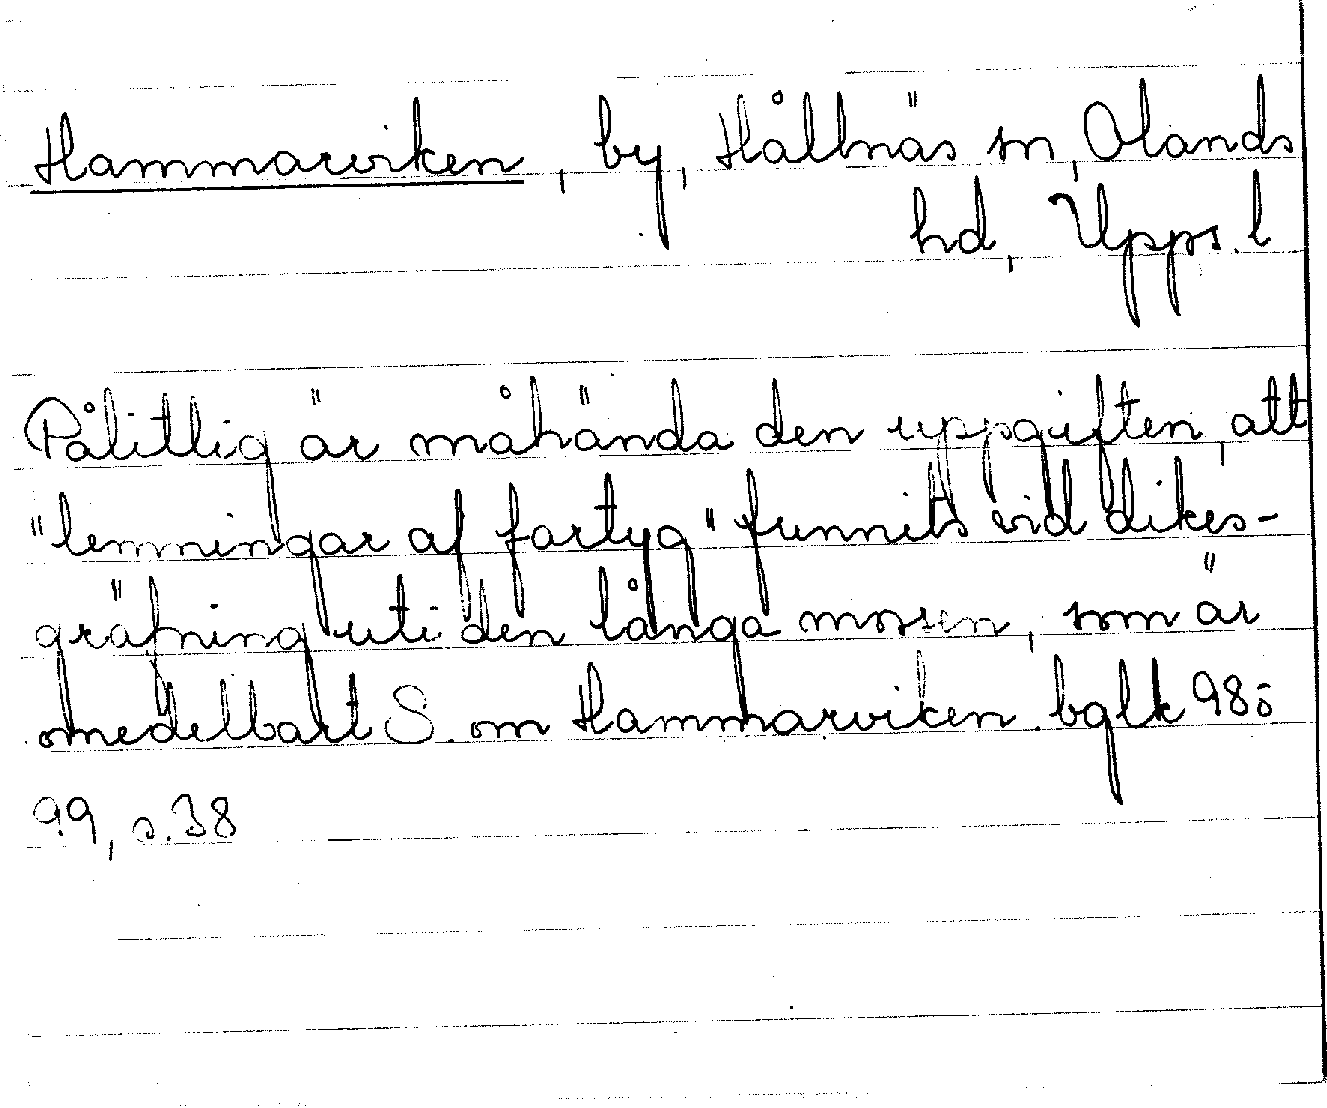 Hammarviken, by, Hållnäs sn, Olands
hd, Upps. l
Pålitlig är måhända den uppgiften, att
"lemningar af fartyg" funnits vid dikes-
gräfning uti den långa mossen, som är
omedelbart S. om Hammarviken. bglk 98ö
99, s. 38